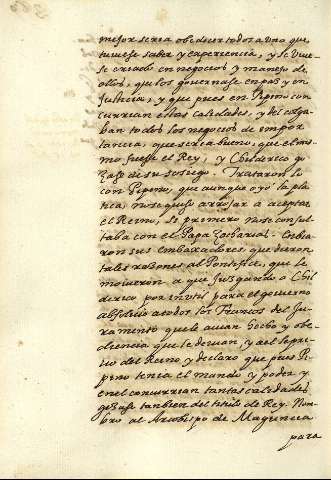 mejor seria obedecer todos a uno que
tuviese saber y experiencia, y se huvie-
se criado en negocios y manejo de
ellos, que los governase en paz y en
Justicia, y que pues en Pepino con
currian estas calidades, y del colga
ban todos los negocios de impor
tancia, que seria bueno, que el mis
mo fuesse el Rey, y Childerico go
zase de su sosiego. Trataron lo
con Pepino, que aunque oyó la pla
tica no se quiso arrojar a aceptar
el Reino, si primero no se consul
taba con el Papa Zacharias. Enbia
ron sus embaxadores que dieron
tales razones al Pontifice, que le
movieron a que Juzgando a Chil
derico por inutil para el govierno
absolvio a todos los Francos del Ju-
ramento que le avian hecho y obe-
diencia que le devian, y a el le pri
vo del Reino y declaro que pues Pi
pino tenia el mando y poder y
en el concurrian tantas calidades
gozase tanbien del titulo de Rey. Non
bro al Arzobispo de Maguncia
para